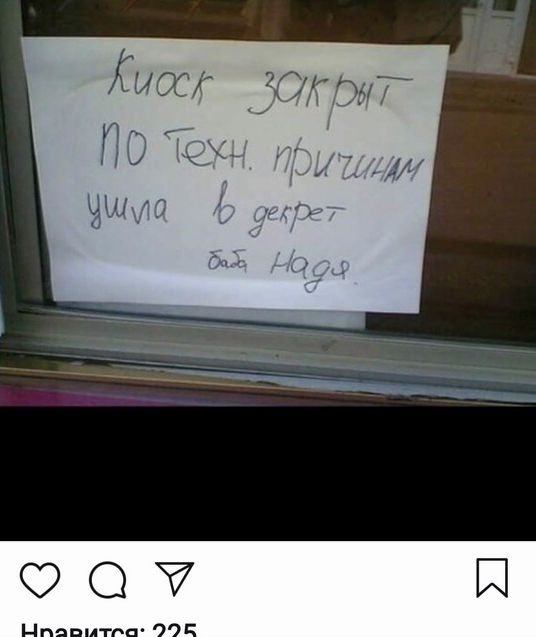 Киоск закрыт
по техн. причинам
ушла в декрет
баба Надя.
Нравится: 225